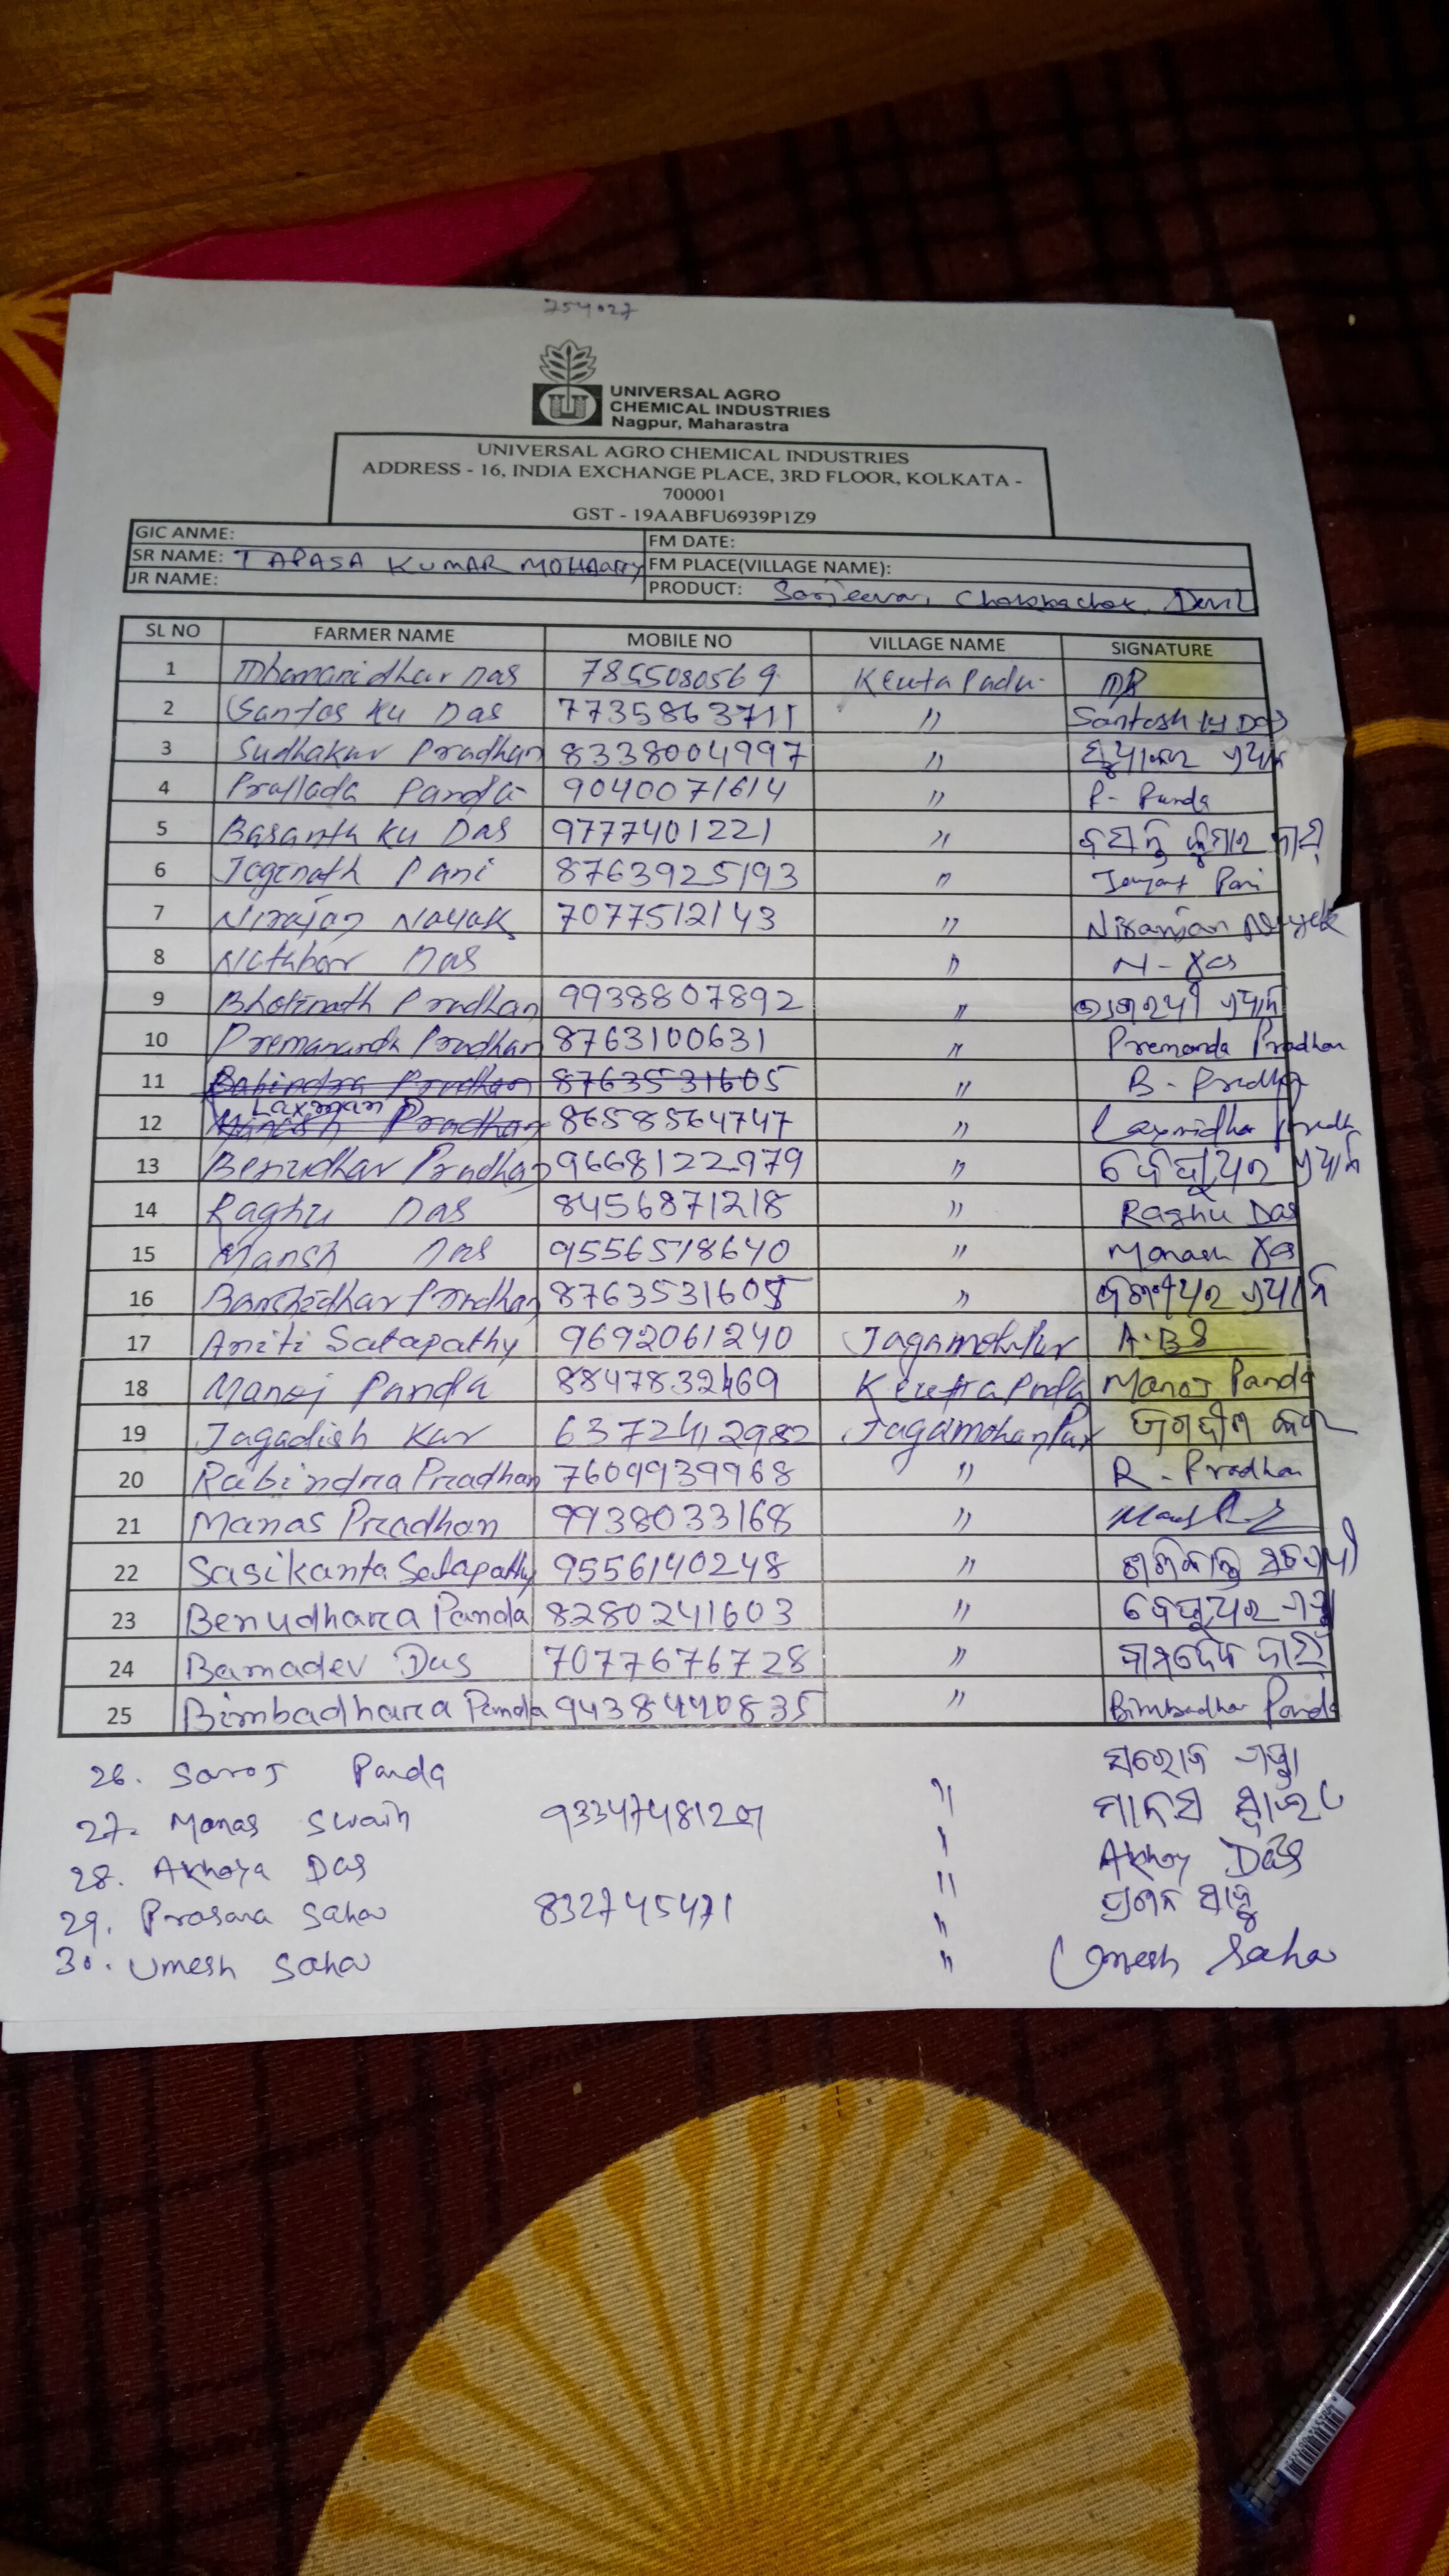 754027
UNIVERSAL AGRO
CHEMICAL INDUSTRIES
Nagpur, Maharastra
UNIVERSAL AGRO CHEMICAL INDUSTRIES
ADDRESS - 16, INDIA EXCHANGE PLACE, 3RD FLOOR, KOLKATA -
700001
GST - 19AABFU6939P1Z9
GIC ANME: FM DATE:
SR NAME: TAPASA KUMAR FM PLACE(VILLAGE NAME):
JR NAME: PRODUCT: Devil
SL NO FARMER NAME MOBILE NO VILLAGE NAME SIGNATURE
1 Das 7855080569 Keuta Pada
2 Santos Ku Das 7735863711 " Santosh Ku Das
3 Sudhakar Pradhan 8338004997 " ସୁଧାକର ପ୍ରଧାନ
4 Prallada Panda 9040071614 " P- Panda
5 Basanta Ku Das 9777401221 " ବସନ୍ତ କୁମାର ଦାସ
6 Jogenath Pani 8763925193 " Pani
7 Nirajan Nayak 7077512143 " Niranjan Nayak
8 Natabar Das " N- Das
9 Bholenath Pradhan 9938807892 " ପ୍ରଧାନ
10 Premananda Pradhan 8763100631 " Premanda Pradhan
11 Pradhan 8763531605 " B - Pradhan
12 Laxman Pradhan 8658564747 " Laxmidhar Pradh
13 Benudhar Pradhan 9668122979 " ବେଣୁଧର ପ୍ରଧାନ
14 Raghu Das 8456871218 " Raghu Das
15 Mansh Das 9556518640 " Manash Das
16 Banshidhar Pradhan 8763531605 " ବଂଶୀଧର ପ୍ରଧାନ
17 Satapathy 9692061240 A.B.S
18 Manoj Panda 8847832469 Manoj Panda
19 Jagadish Kar 6372412982 Jagamohanpur ଜଗଦୀଶ କର
20 Rabindra Pradhan 7609939968 " R - Pradhan
21 Manas Pradhan 9938033168 "
22 Sasikanta Satapathy 9556140248 " ଶଶିକାନ୍ତ ଷଡପଥୀ
23 Benudhara Panda 8280241603 " ବେଣୁଧର ପଣ୍ଡା
24 Bamadev Das 7077676728 " ବାମଦେବ ଦାସ
25 Bimbadhara Panda 9438440835 " Bimbadhar Panda
26. Saroj Panda " ସରୋଜ ପଣ୍ଡା
27. Manas Swain " ମାନସ ସ୍ୱାଇଁ
28. Akhaya Das " Akhay Das
29. Prasana Sahoo 832745471 " ପ୍ରଶନ ସାହୁ
30. Umesh Sahoo " Umesh Sahoo